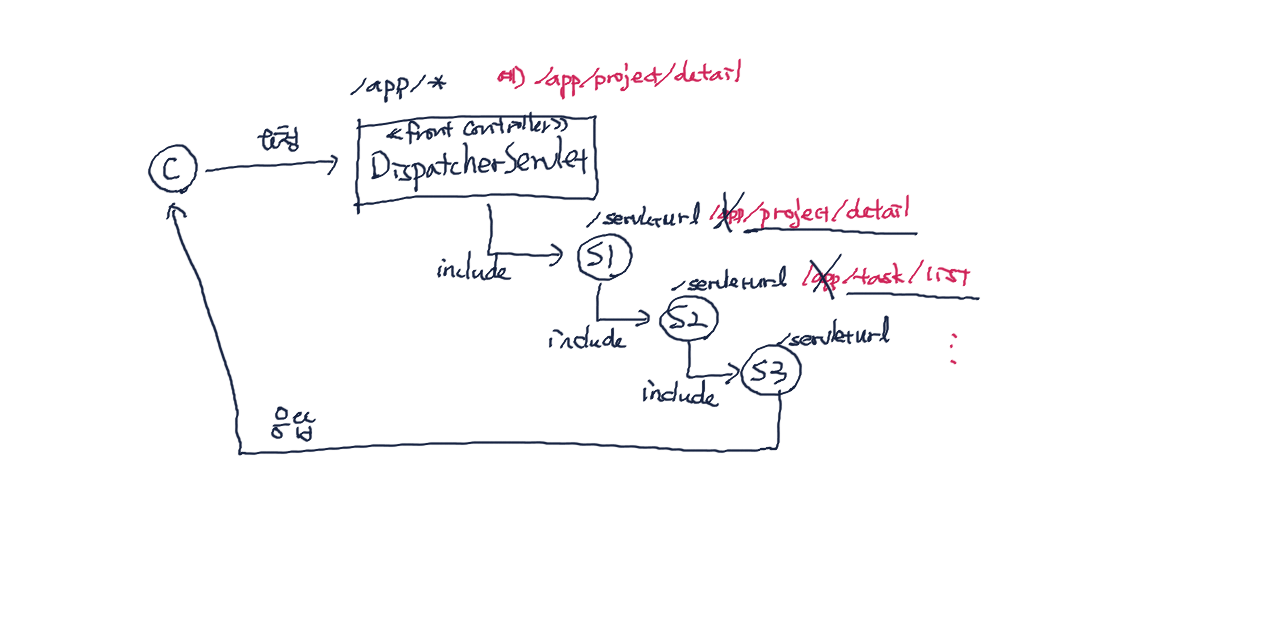 /app/* 예) /app/project/detail
요청
<<front controller>>
DispatcherServlet
C
/servleturl /app/project/detail
S1
include
/servleturl /app/task/list
S2
include
/servleturl
S3
include
응답